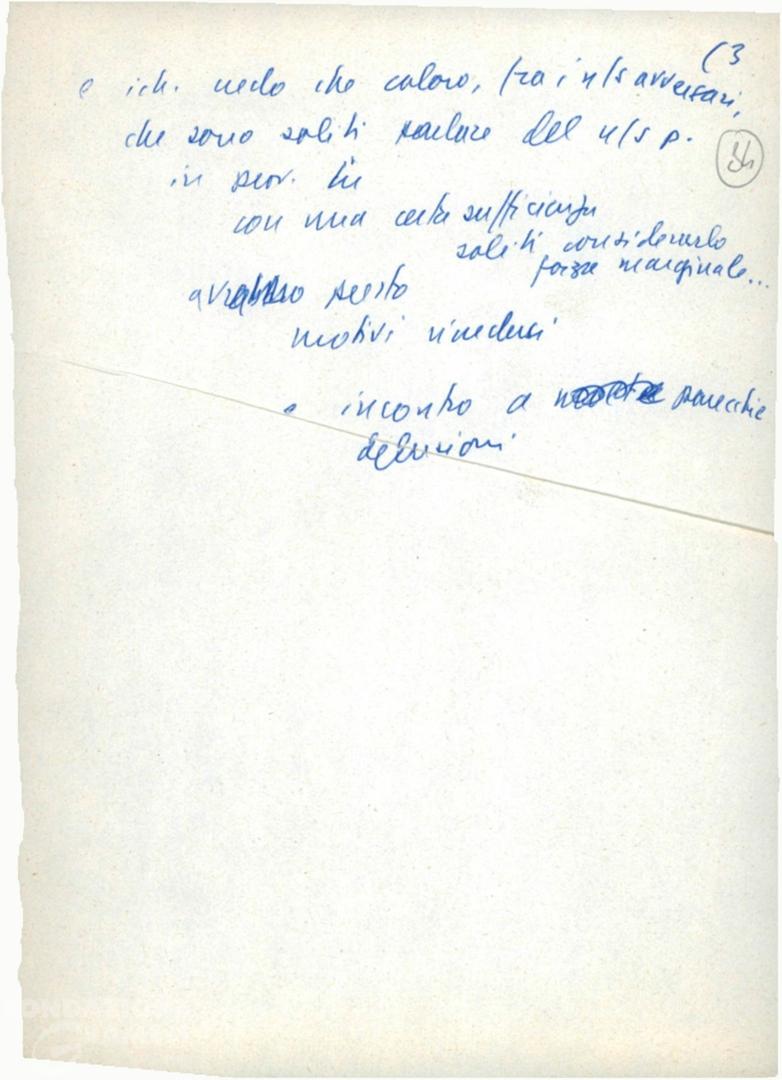 (3
e ich. credo che coloro, fra i n/s avversari,
che sono soliti parlare del n/s p.
34
in prov. TN
con una certa sufficienza
soliti considerarlo
forza marginale...
avranno presto
motivi ricredersi
e incontro a parecchie
delusioni